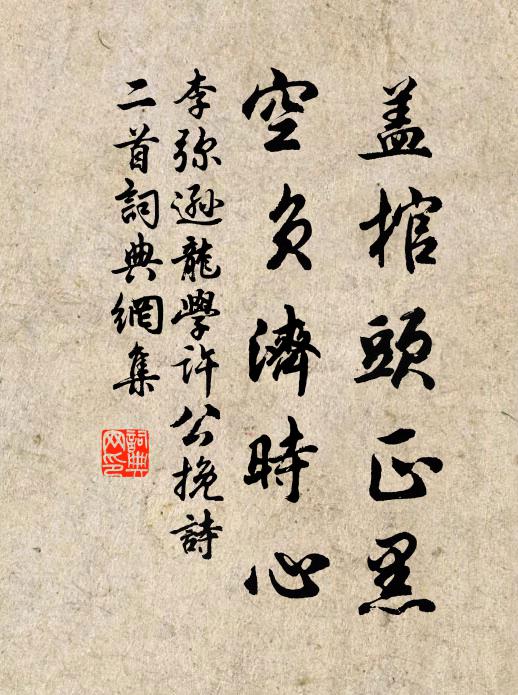 蓋棺頭正黑
空負濟時心
李弥遜龍學許公挽詩
二首詞典網集
詞典
网印